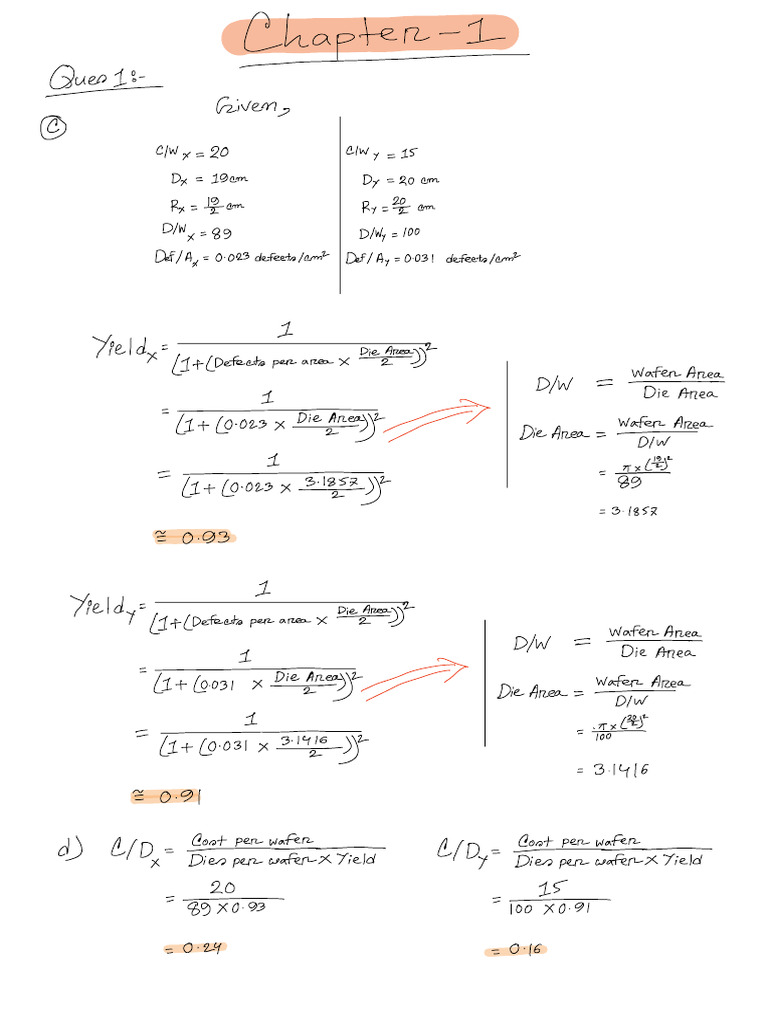 Chapter-1
Ques 1:-
Given,
C
C/W x = 20
Dx = 19cm
Rx = 19/2 cm
D/W x = 89
Def/Ax = 0.023 defects/cm²
C/W y = 15
Dy = 20 cm
Ry = 20/2 cm
D/Wy = 100
Def/Ay = 0.031 defects/cm²
Yieldx = 1/(1+(Defects per area × Die Area/2))²
= 1/(1+(0.023 × Die Area/2))²
= 1/(1+(0.023 × 3.1857/2))²
≅ 0.93
D/W = Wafer Area/Die Area
Die Area = Wafer Area/D/W
= π×(19/2)²/89
= 3.1857
Yieldy = 1/(1+(Defects per area × Die Area/2))²
= 1/(1+(0.031 × Die Area/2))²
= 1/(1+(0.031 × 3.1416/2))²
≅ 0.91
D/W = Wafer Area/Die Area
Die Area = Wafer Area/D/W
= π×(20/2)²/100
= 3.1416
d) C/Dx = Cost per wafer/Dies per wafer × Yield
= 20/89 × 0.93
= 0.24
C/Dy = Cost per wafer/Dies per wafer × Yield
= 15/100 × 0.91
= 0.16